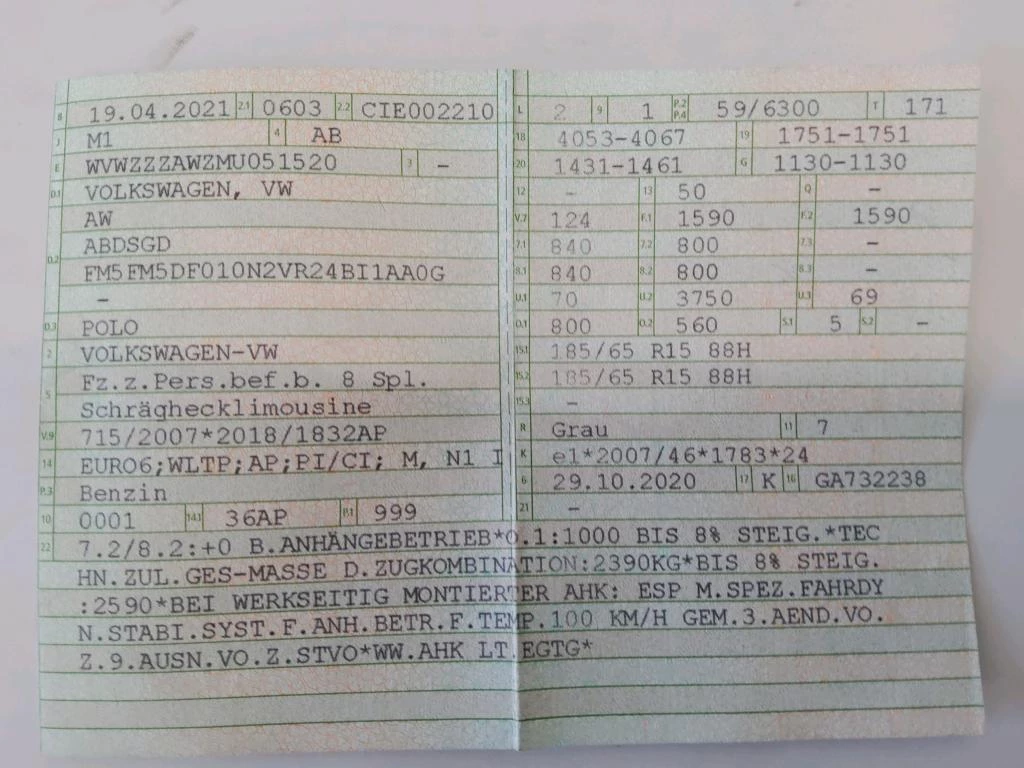 B 19.04.2021 2.1 0603 2.2 CIE002210
J M1 4 AB
E WVWZZZAWZMU051520 3 -
D.1 VOLKSWAGEN, VW
AW
D.2 ABDSGD
FM5FM5DF010N2VR24BI1AA0G
-
D.3 POLO
2 VOLKSWAGEN-VW
5 Fz.z.Pers.bef.b. 8 Spl.
Schräghecklimousine
V.9 715/2007*2018/1832AP
14 EURO6;WLTP;AP;PI/CI; M, N1 I
P.3 Benzin
10 0001 14.1 36AP P.1 999
L 2 9 1 P.2 P.4 59/6300 T 171
18 4053-4067 19 1751-1751
20 1431-1461 G 1130-1130
12 - 13 50 Q -
V.7 124 F.1 1590 F.2 1590
7.1 840 7.2 800 7.3 -
8.1 840 8.2 800 8.3 -
U.1 70 U.2 3750 U.3 69
O.1 800 O.2 560 S.1 5 S.2 -
15.1 185/65 R15 88H
15.2 185/65 R15 88H
15.3 -
R Grau 11 7
K e1*2007/46*1783*24
6 29.10.2020 17 K 16 GA732238
21 -
22 7.2/8.2:+0 B.ANHÄNGEBETRIEB*O.1:1000 BIS 8% STEIG.*TEC
HN.ZUL.GES-MASSE D.ZUGKOMBINATION:2390KG*BIS 8% STEIG.
:2590*BEI WERKSEITIG MONTIERTER AHK: ESP M.SPEZ.FAHRDY
N.STABI.SYST.F.ANH.BETR.F.TEMP.100 KM/H GEM.3.AEND.VO.
Z.9.AUSN.VO.Z.STVO*WW.AHK LT.EGTG*